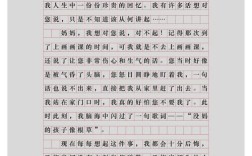 我人生中一份份珍贵的回忆。我有许多话想对
您说，只是不知道该从何讲起——
妈妈，我想对您说，对不起！记得那次到
了上画画课的时间，可我就是不肯去上画画课，
还说了让您非常伤心和生气的话。您当时好像
是被气昏了头脑，您怒目圆睁地盯着我，一句
话也说不出来，直接把我从家里拉了出去。当
我站在家门口时，我真的好害怕您不要我了。此
时此刻，我脑海中闪过了一句歌词——“没妈
的孩子像根草”。
现在每每想起这件事，我都会十分后悔，